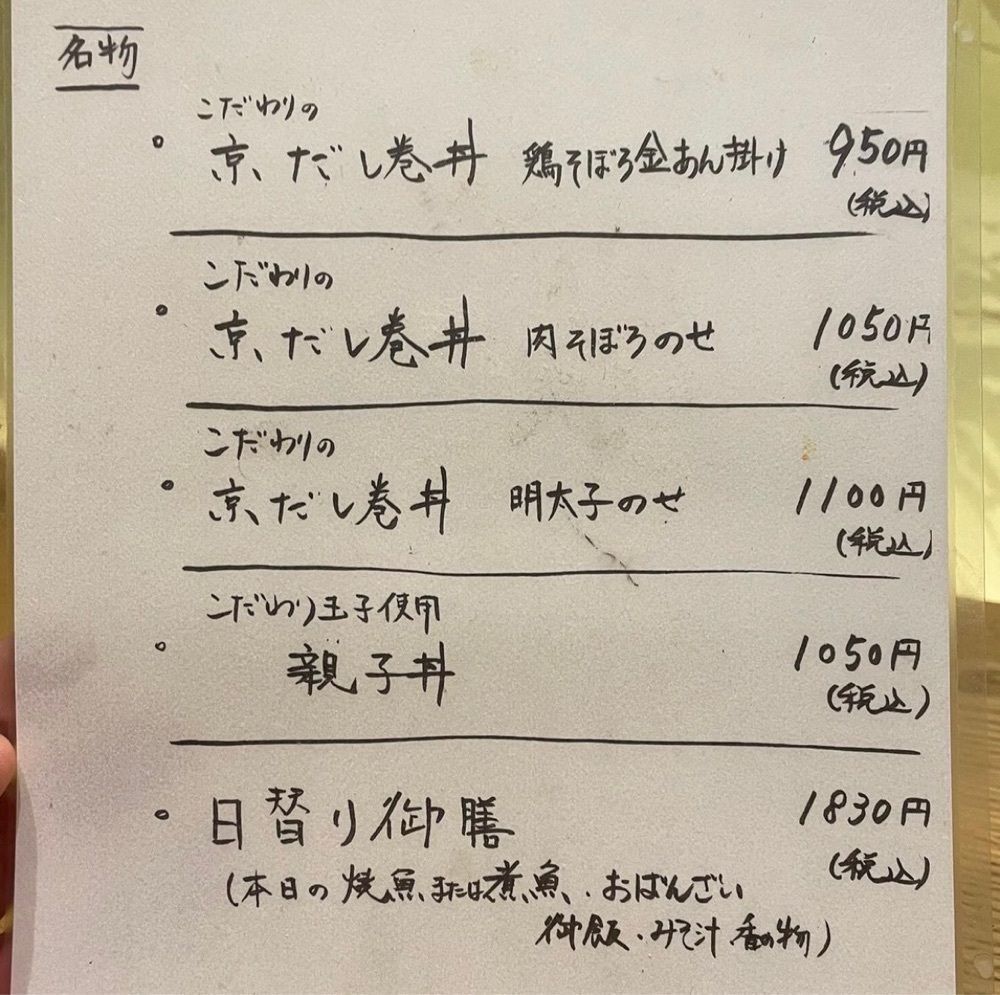 名物
こだわりの
。京、だし巻丼 鶏そぼろ金あん掛け 950円
(税込)
こだわりの
。京、だし巻丼 肉そぼろのせ 1050円
(税込)
こだわりの
。京、だし巻丼 明太子のせ 1100円
(税込)
こだわり玉子使用
。親子丼 1050円
(税込)
。日替り御膳 1830円
(税込)
(本日の焼魚または煮魚、・おばんざい
御飯・みそ汁・香の物)